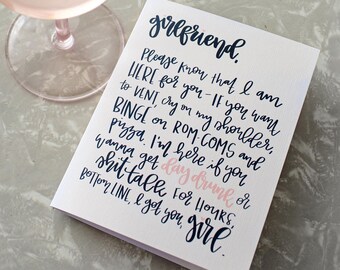 girlfriend,
Please know that I am
HERE for you - IF you want
to VENT, cry on my shoulder,
BINGE on ROM COMS and
pizza, I'm here. if you
wanna get day drunk or
shit-talk FOR HOURS,
BOTTOM LINE, I got you, girl.